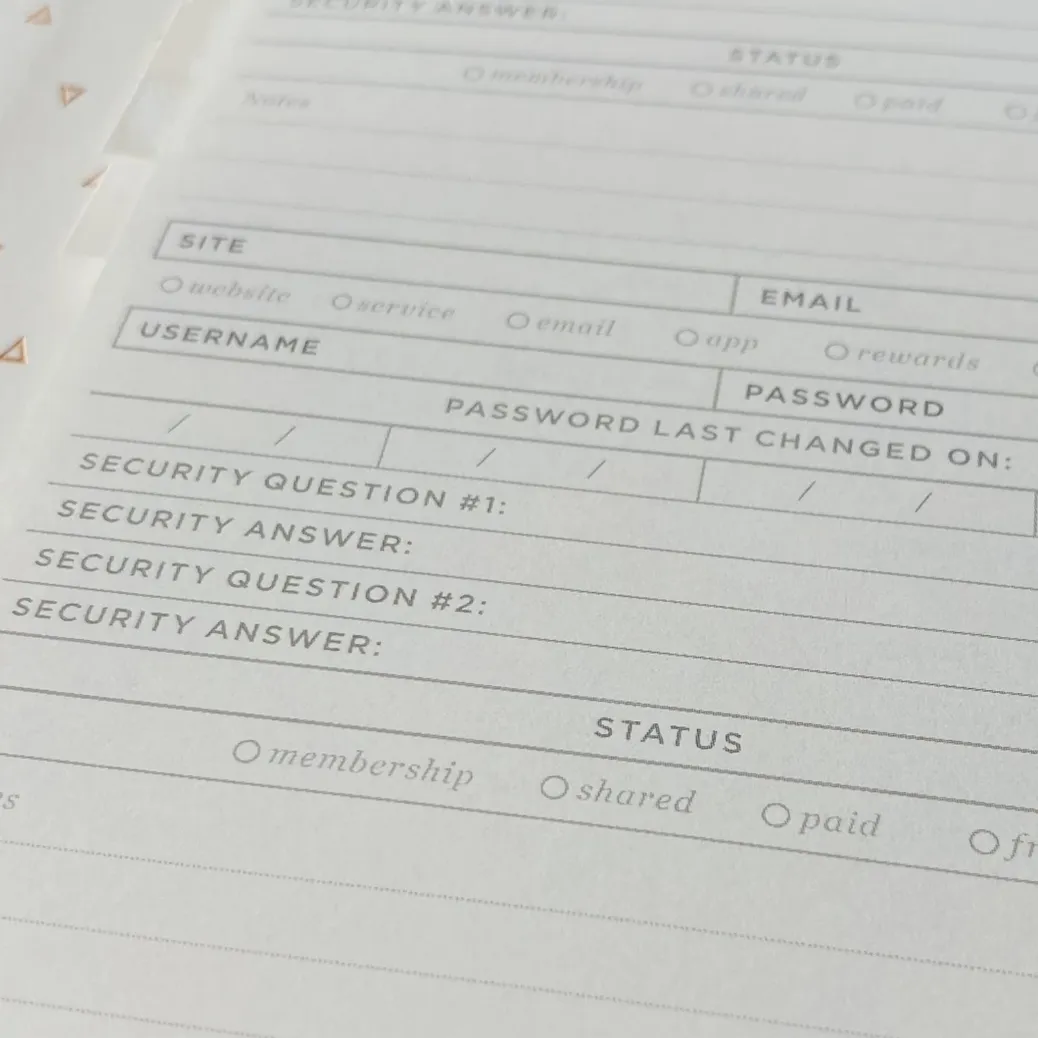 SECURITY ANSWER:
STATUS
membership shared paid
Notes
SITE EMAIL
website service email app rewards
USERNAME PASSWORD
PASSWORD LAST CHANGED ON:
/ / / / / /
SECURITY QUESTION #1:
SECURITY ANSWER:
SECURITY QUESTION #2:
SECURITY ANSWER:
STATUS
membership shared paid